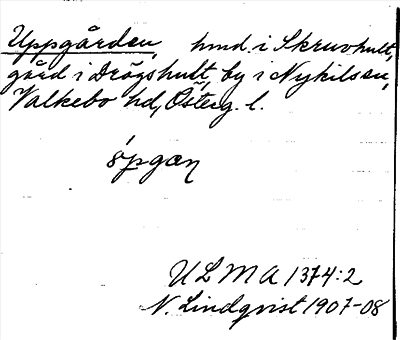 Uppgården, hmd. i Skruvhult,
gård i Drögshult, by i Nykil sn,
Valkebo hd, Österg. l.
ópgaɳ
ULMA 1374:2
N. Lindqvist 1907-08